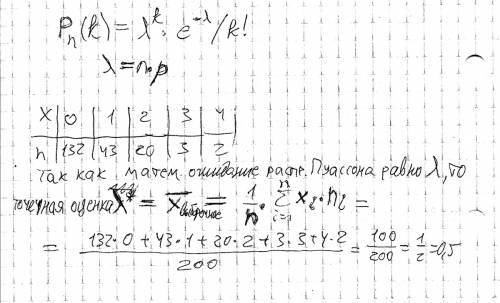 Pₙ(k) = λᵏ · e^-λ / k!
λ = n·p
X | 0 | 1 | 2 | 3 | 4
n | 132 | 43 | 20 | 3 | 2
Так как матем. ожидание распр. Пуассона равно λ, то
точечная оценка = x̄выборочное = 1/n · Σ i=1 n xᵢ · nᵢ =
= (132·0 + 43·1 + 20·2 + 3·3 + 4·2)/200 = 100/200 = 1/2 = 0,5